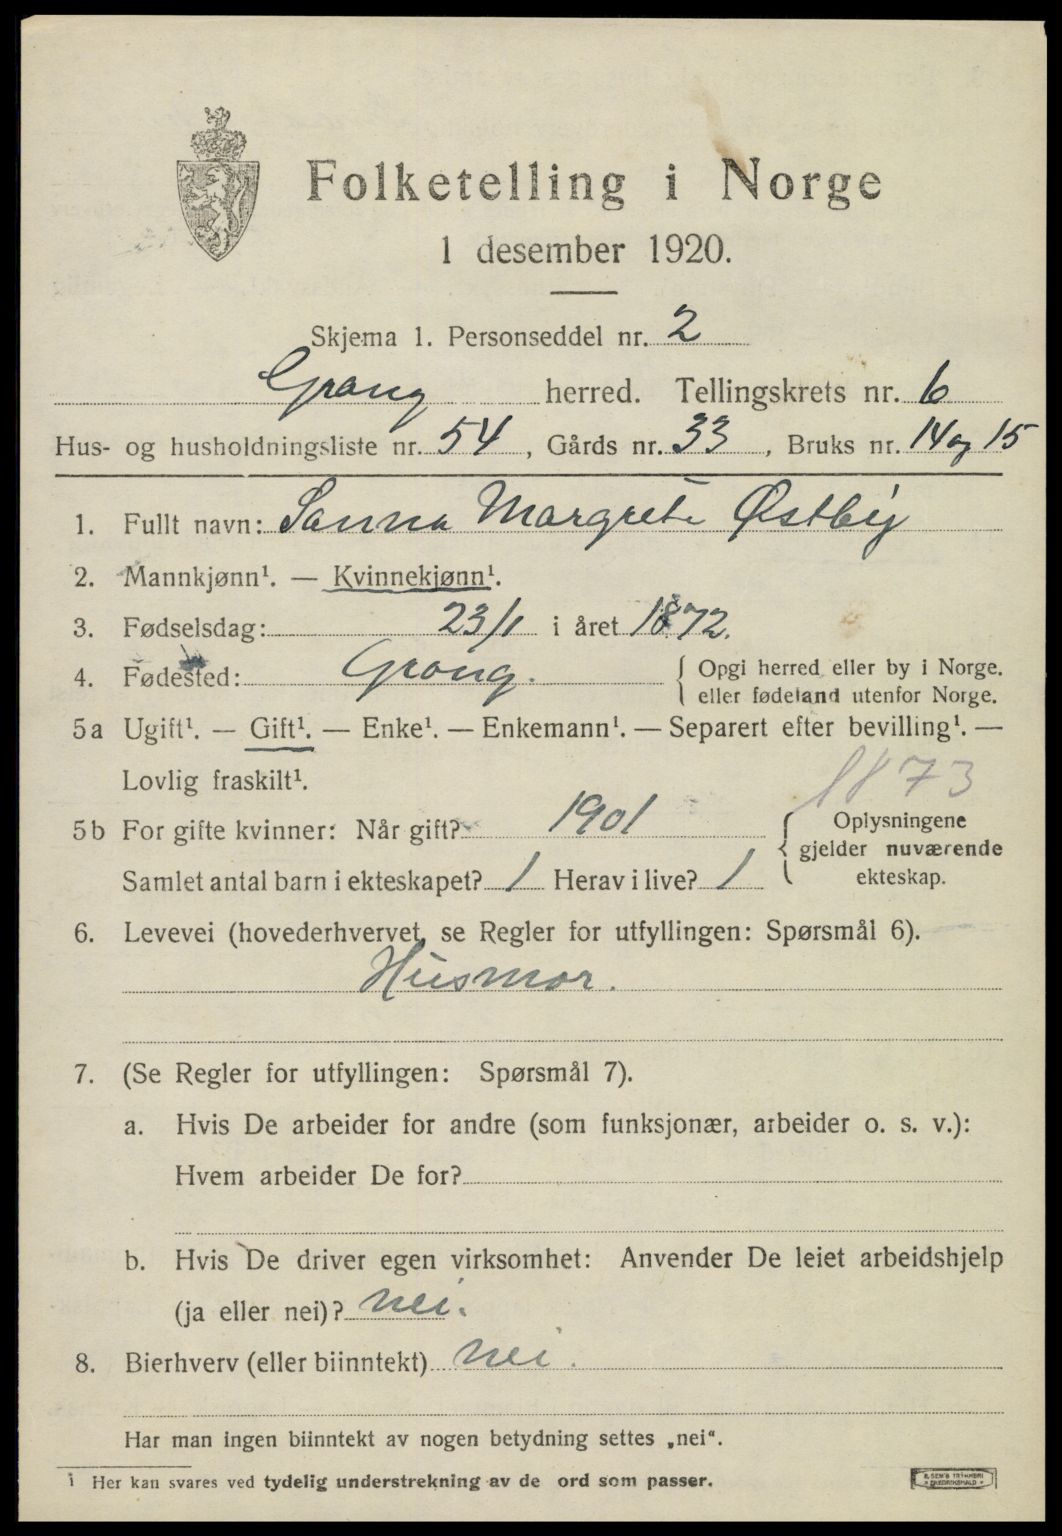 Folketelling i Norge
1 desember 1920.
Skjema 1. Personseddel nr. 2
Grong herred. Tellingskrets nr. 6
Hus- og husholdningsliste nr. 54, Gårds nr. 33, Bruks nr. 14 og 15
1. Fullt navn: Sanna Margrete Østby
2. Mannkjønn¹. — Kvinnekjønn¹.
3. Fødselsdag: 23/1 i året 1872.
4. Fødested: Grong. { Opgi herred eller by i Norge.
eller fødeland utenfor Norge.
5a Ugift¹. — Gift¹. — Enke¹. — Enkemann¹. — Separert efter bevilling¹. —
Lovlig fraskilt¹. 1873
5b For gifte kvinner: Når gift? 1901 { Oplysningene
gjelder nuværende
Samlet antal barn i ekteskapet? 1 Herav i live? 1 ekteskap.
6. Levevei (hovederhvervet, se Regler for utfyllingen: Spørsmål 6).
Husmor.
7. (Se Regler for utfyllingen: Spørsmål 7).
a. Hvis De arbeider for andre (som funksjonær, arbeider o. s. v.):
Hvem arbeider De for?
b. Hvis De driver egen virksomhet: Anvender De leiet arbeidshjelp
(ja eller nei)? nei.
8. Bierhverv (eller biinntekt) nei.
Har man ingen biinntekt av nogen betydning settes „nei“.
¹ Her kan svares ved tydelig understrekning av de ord som passer.